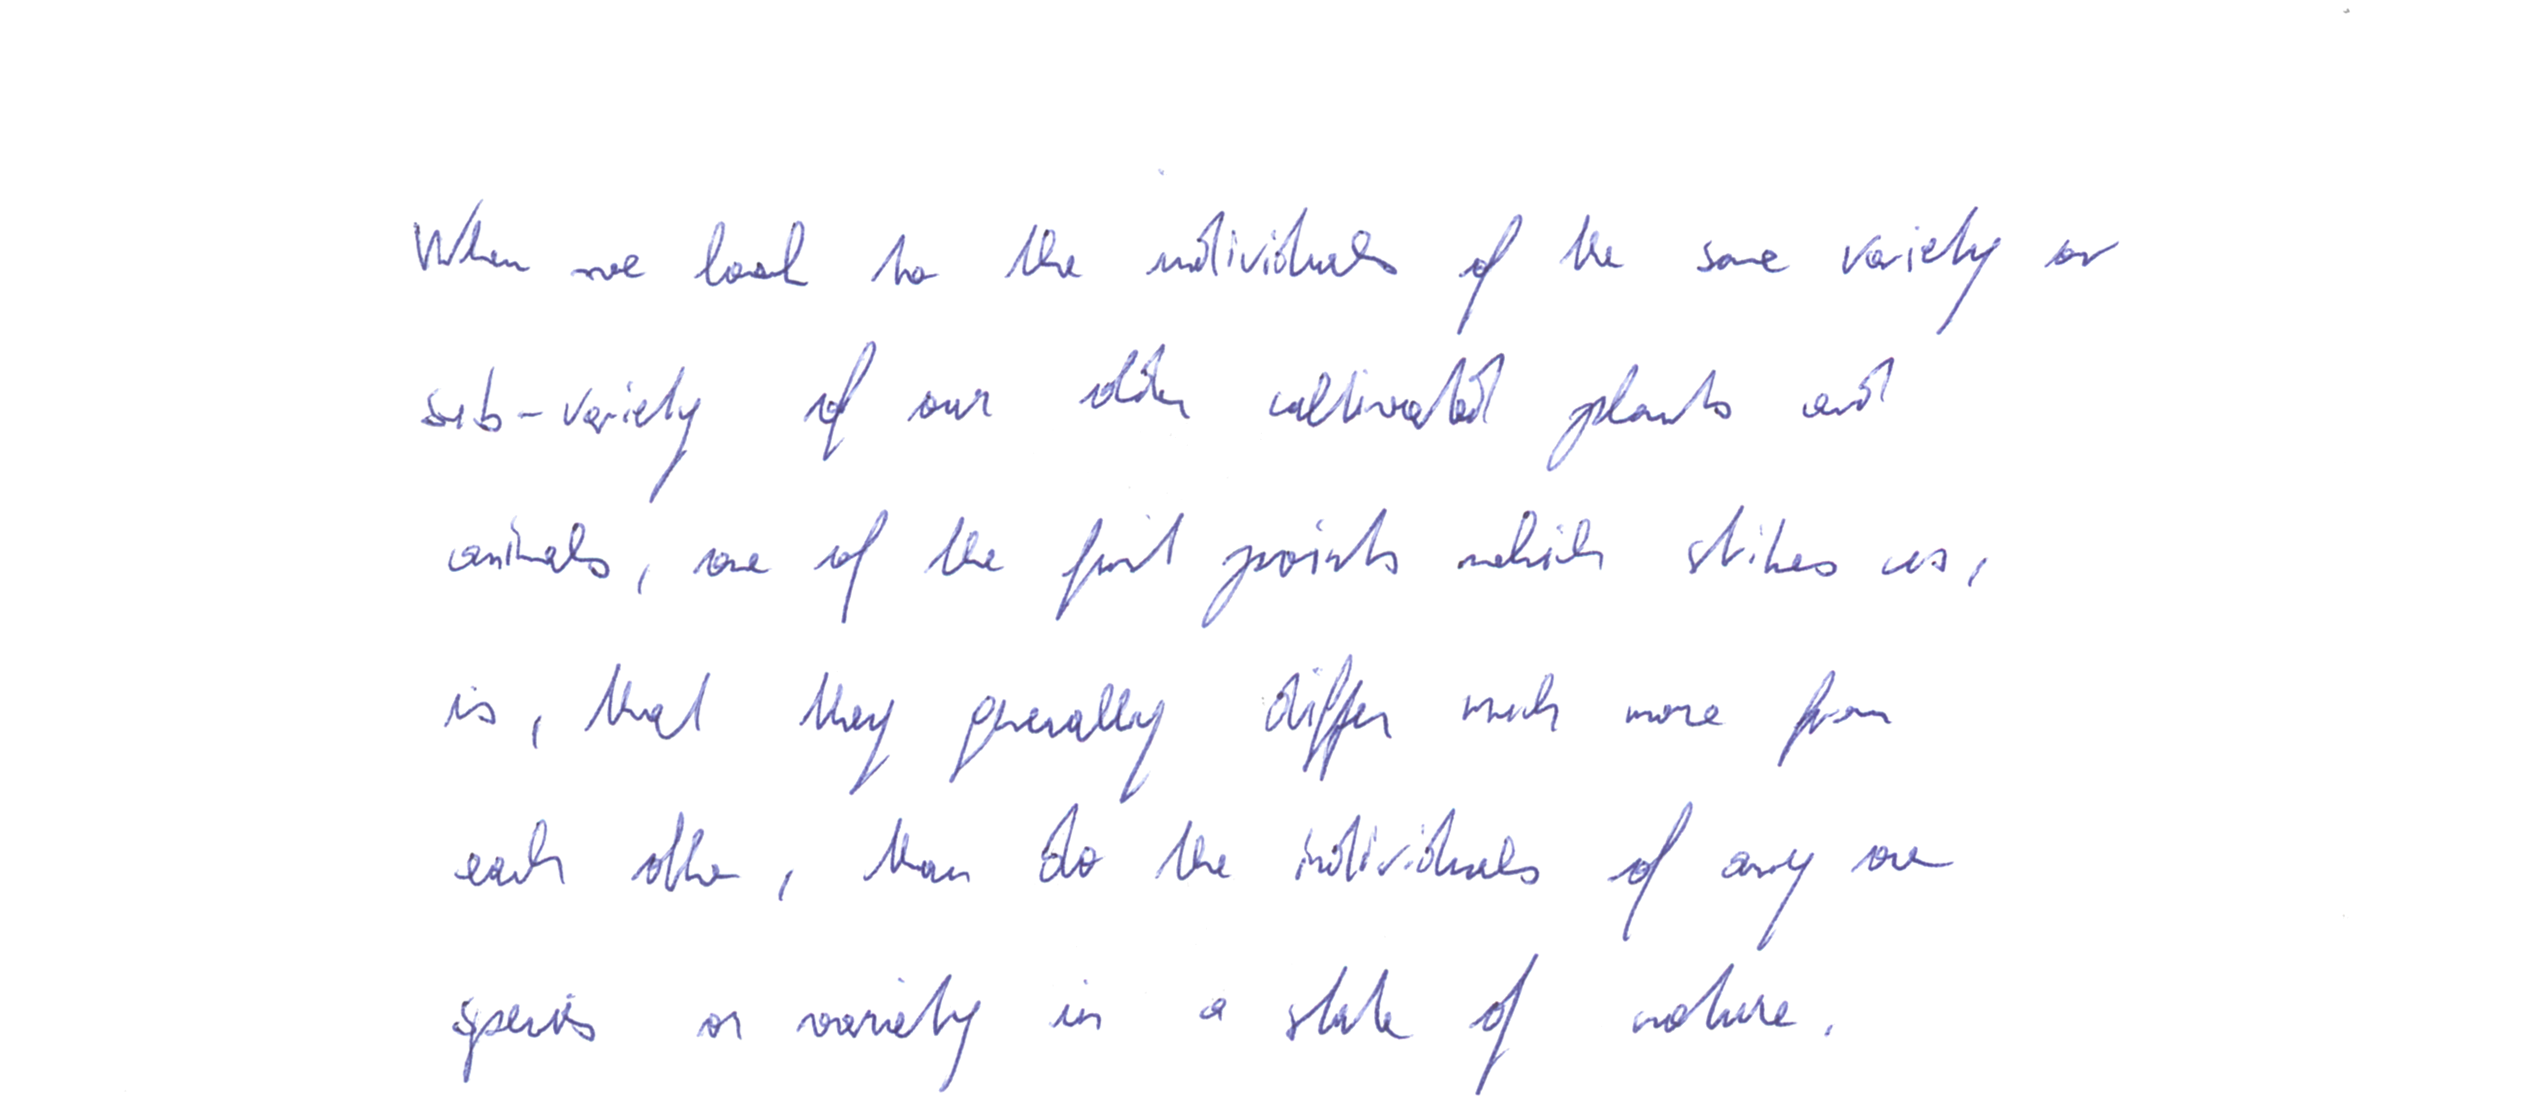 When we look to the individuals of the same variety or
sub-variety of our older cultivated plants and
animals, one of the first points which strikes us,
is, that they generally differ much more from
each other, than do the individuals of any one
species or variety in a state of nature.